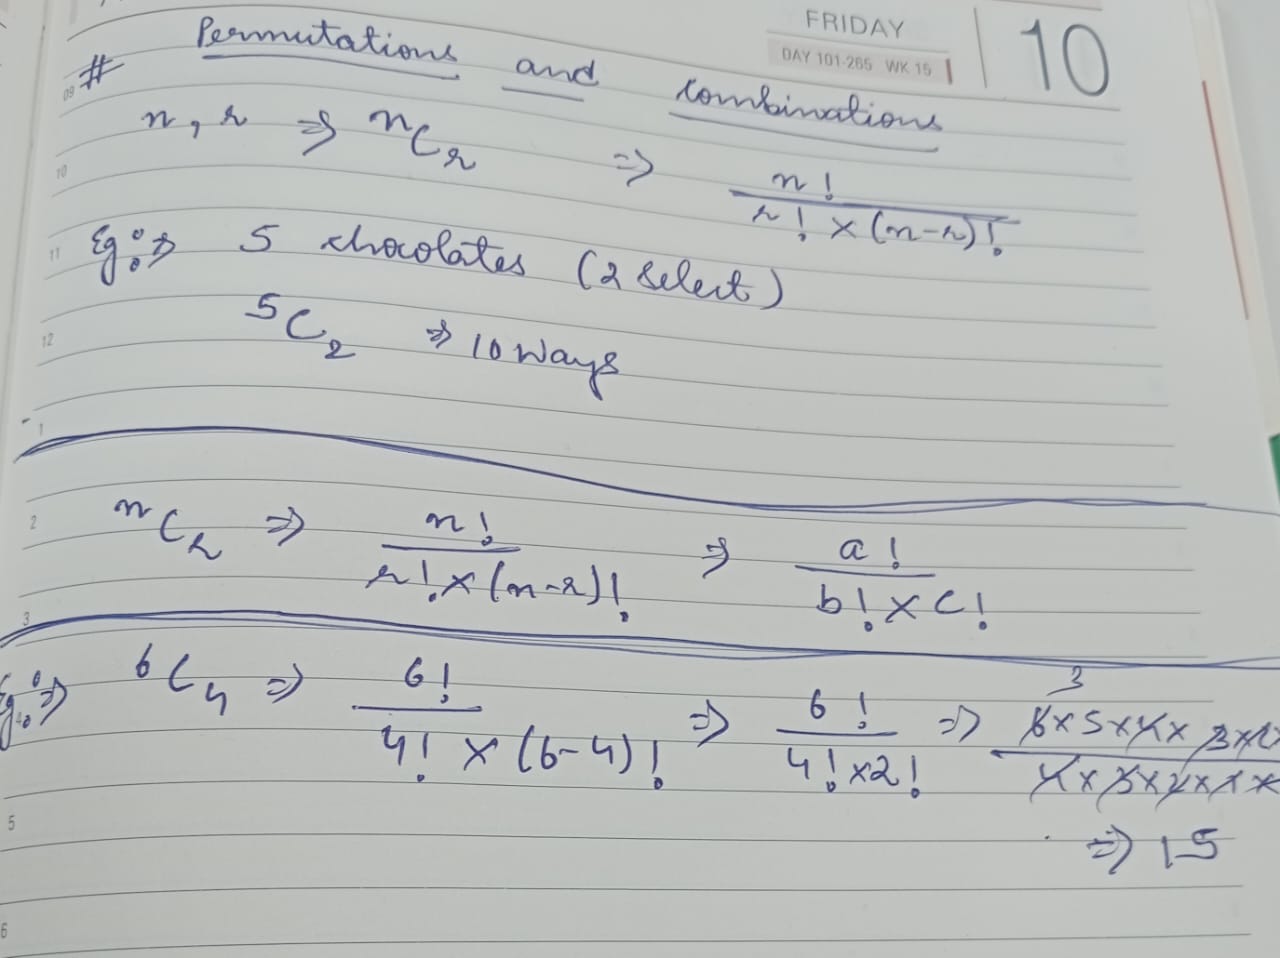 FRIDAY
DAY 101-265 WK 15
10
# Permutations and combinations
09
n, r ⇒ ⁿCᵣ ⇒ n! / r! × (n-r)!
10
11
Eg:⇒ 5 chocolates (2 select)
⁵C₂ ⇒ 10 ways
12
1
2
ⁿCᵣ ⇒ n! / r! × (n-r)! ⇒ a! / b! × c!
3
Eg:⇒ ⁶C₄ ⇒ 6! / 4! × (6-4)! ⇒ 6! / 4! × 2! ⇒ 6×5×4×3×2 / 4×3×2×1×
3
5
⇒ 15
6